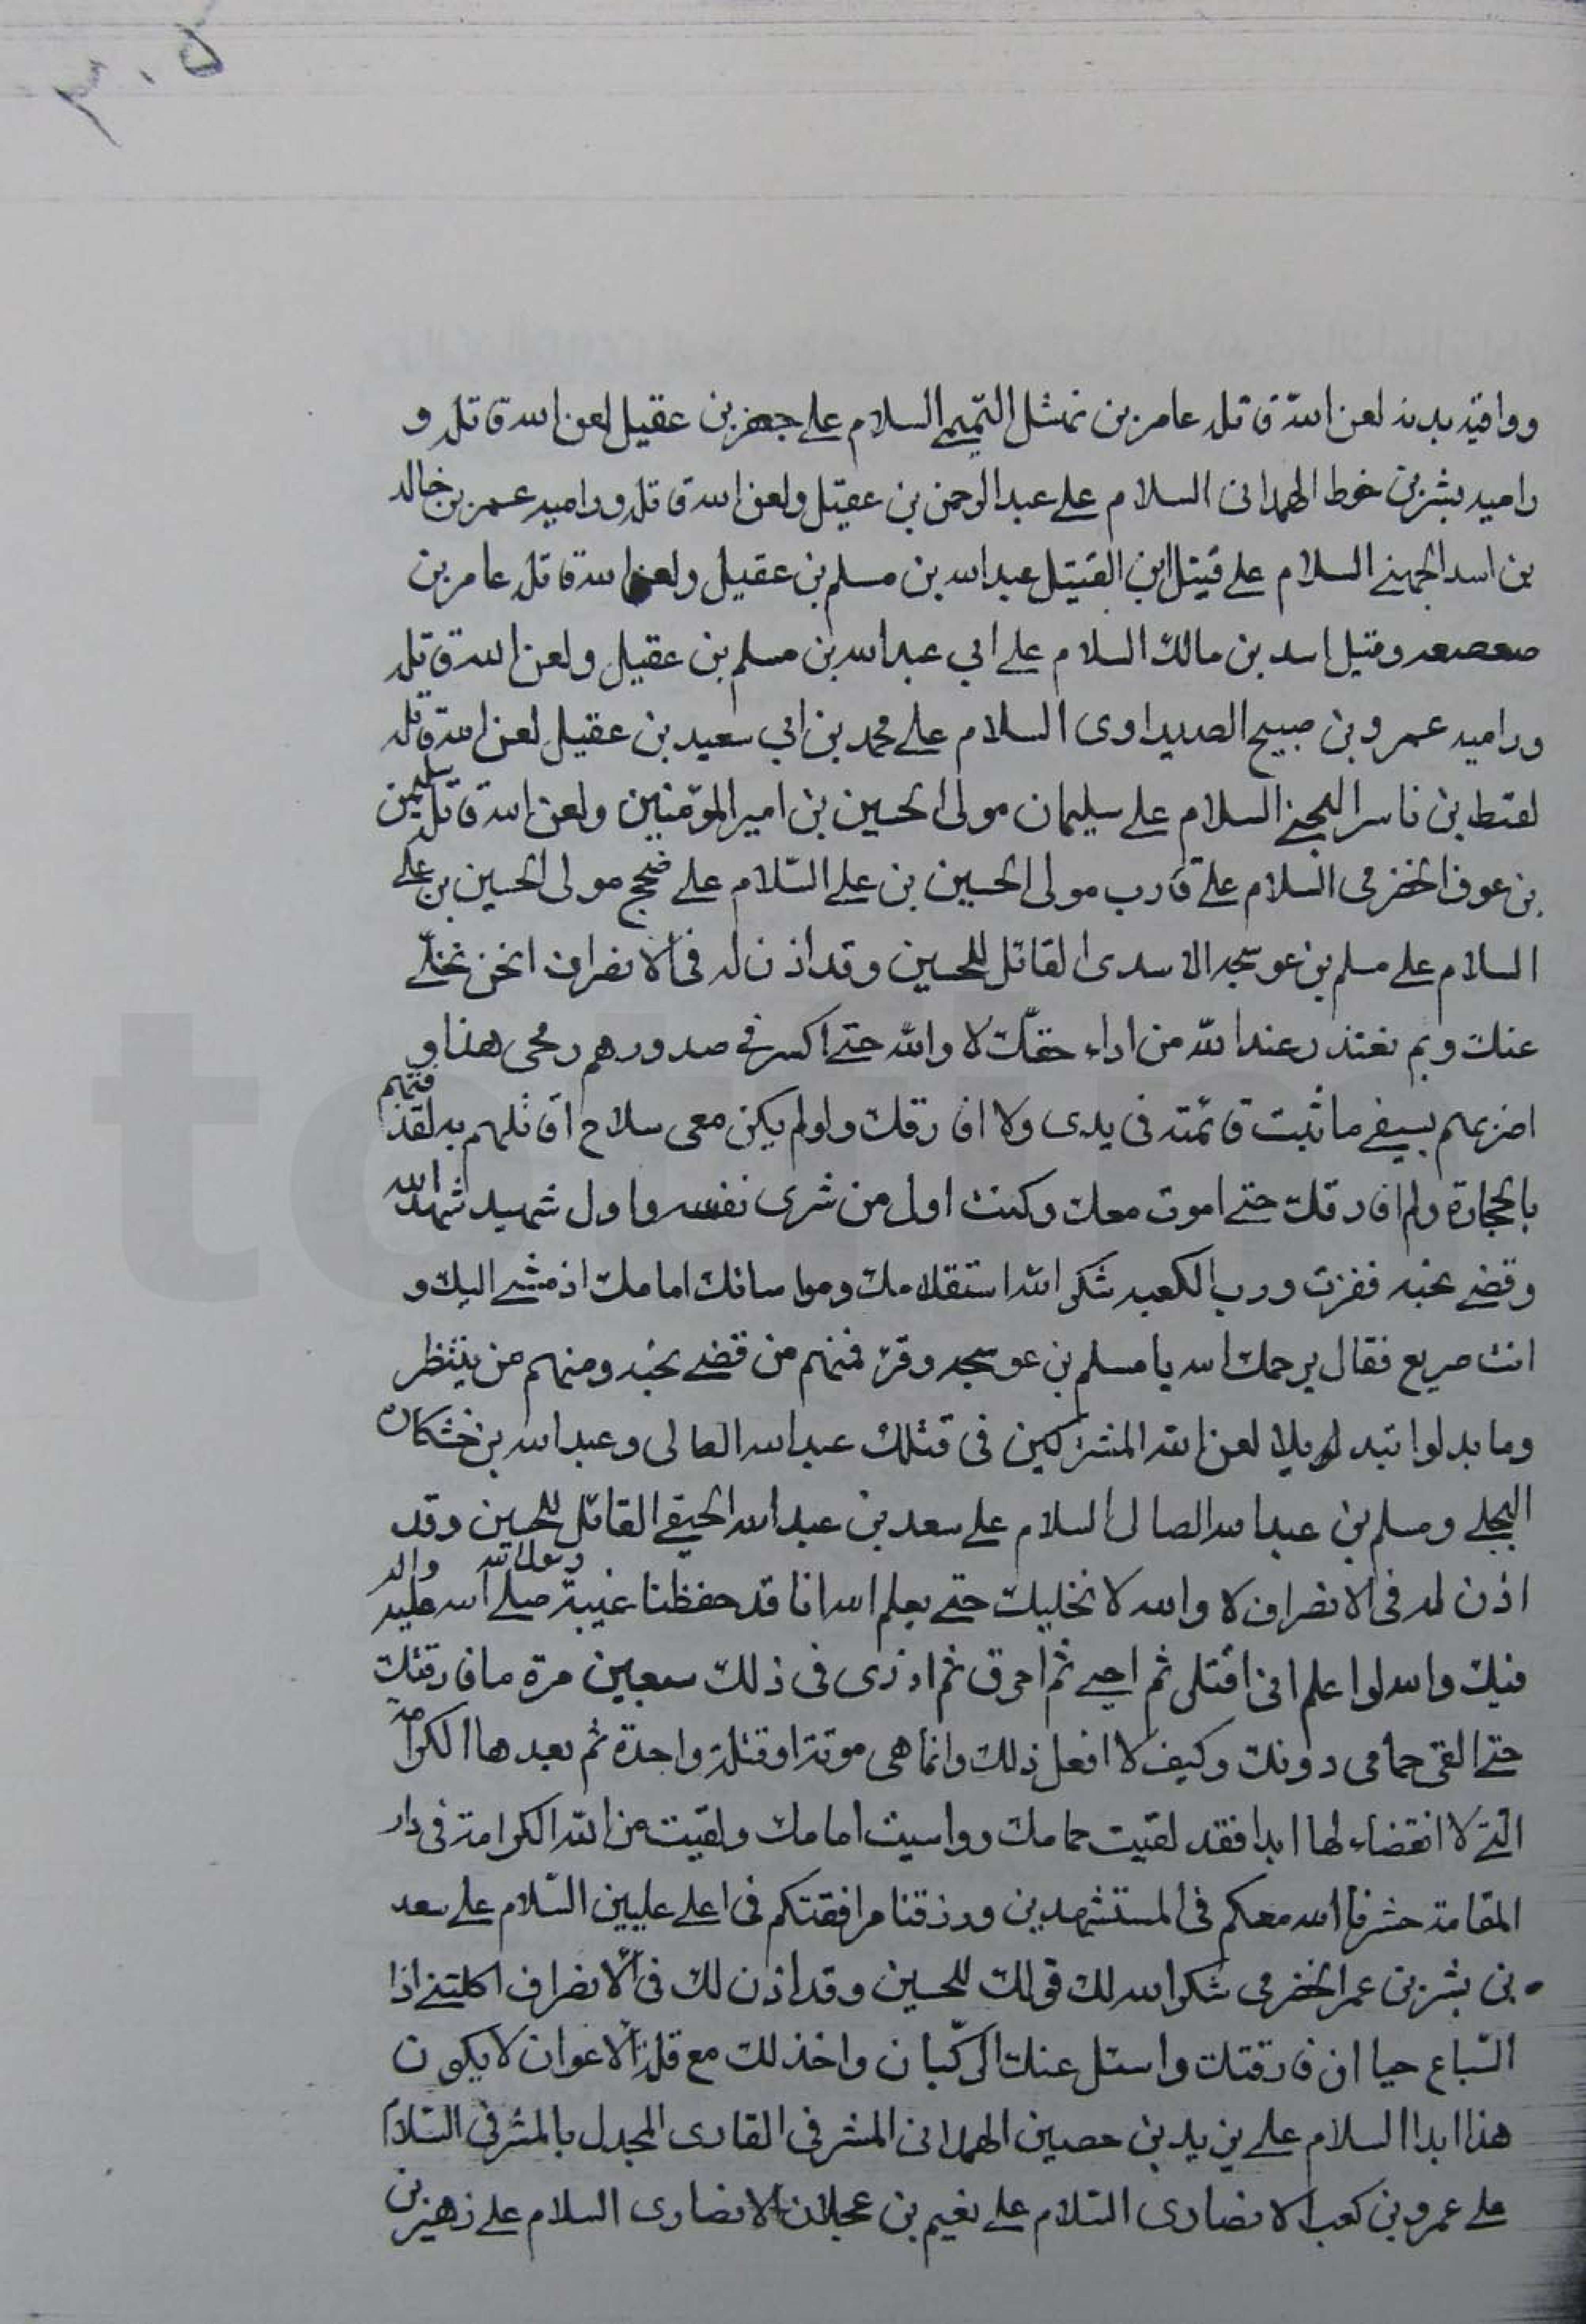 ٣٠٥
وواقيه بدنه لعن الله قاتله عامر بن نهشل التميمي السلام على جعفر بن عقيل لعن الله قاتله و
راميه بشر بن خوط الهمداني السلام على عبد الرحمن بن عقيل ولعن الله قاتله وراميه عمر بن خالد
بن اسد الجهني السلام على قتيل ابن القتيل عبد الله بن مسلم بن عقيل ولعن الله قاتله عامر بن
صعصعه وقتيل اسد بن مالك السلام على ابي عبد الله بن مسلم بن عقيل ولعن الله قاتله
وراميه عمرو بن صبيح الصيداوى السلام على محمد بن ابي سعيد بن عقيل لعن الله قاتله
لقيط بن ناسر الجهني السلام على سليمان مولى الحسين بن امير المؤمنين ولعن الله قاتله سليمن
بن عوف الحضرمى السلام على قارب مولى الحسين بن على السلام على منجح مولى الحسين بن على
السلام على مسلم بن عوسجه الاسدى القائل للحسين وقد اذن له فى الانصراف انحن نخلّى
عنك وبم نعتذر عند الله من اداء حقّك لا والله حتى اكسر فى صدورهم رمحى هذا و
اضربهم بسيفى ما ثبت قائمته فى يدى ولا افارقك ولو لم يكن معى سلاح اقاتلهم به لقذفتهم
بالحجارة ولم افارقك حتى اموت معك وكنت اول من شرى نفسه واول شهيد شهد الله
وقضى نحبه ففزت ورب الكعبه شكر الله استقدامك ومواساتك امامك اذ مشى اليك و
انت صريع فقال يرحمك الله يا مسلم بن عوسجه وقرء فمنهم من قضى نحبه ومنهم من ينتظر
وما بدلوا تبديلا لعن الله المشتركين فى قتلك عبد الله الصالى وعبد الله بن خشكاره
البجلى ومسلم بن عبد الله الصالى السلام على سعد بن عبد الله الحنفى القائل للحسين وقد
اذن له فى الانصراف لا والله لا نخليك حتى يعلم الله انا قد حفظنا غيبة رسول الله صلى الله عليه واله
فيك والله لو اعلم انى اقتل ثم احيى ثم احرق ثم اذرى فى ذلك سبعين مرة ما فارقتك
حتى القى حمامى دونك وكيف لا افعل ذلك وانما هى موتة او قتلة واحدة ثم بعدها الكرامة
التى لا انقضاء لها ابدا فقد لقيت حمامك وواسيت امامك ولقيت من الله الكرامة فى دار
المقامة حشرنا الله معكم فى المستشهدين ورزقنا مرافقتكم فى اعلى عليين السلام على سعد
بن بشر بن عمر الحضرمى شكر الله لك قولك للحسين وقد اذن لك فى الانصراف اكلتنى اذا
السّباع حيا ان فارقتك واسئل عنك الركّبان واخذلك مع قلة الاعوان لا يكون
هذا ابدا السلام على يزيد بن حصين الهمدانى المشرفى القارى المجدل بالمشرفى السلام
على عمرو بن كعب الانصارى السلام على نعيم بن عجلان الانصارى السلام على زهير بن